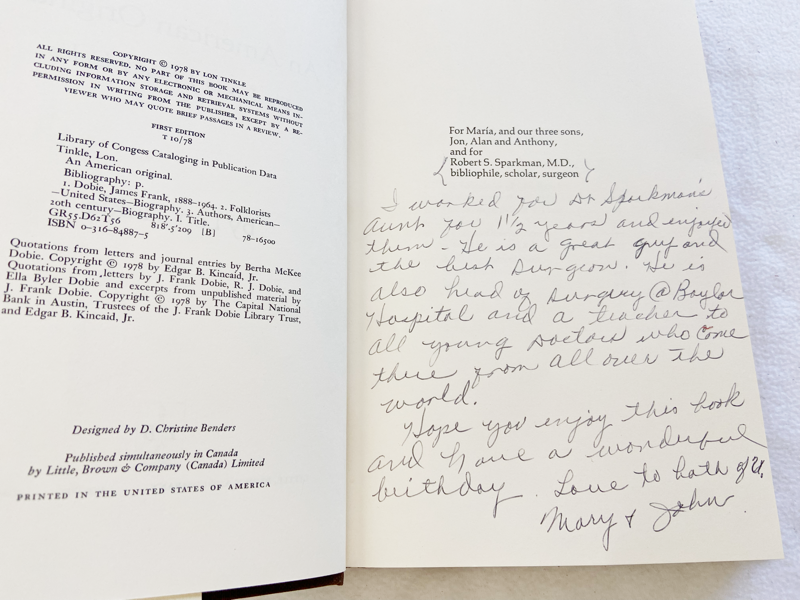 COPYRIGHT © 1978 BY LON TINKLE
ALL RIGHTS RESERVED. NO PART OF THIS BOOK MAY BE REPRODUCED
IN ANY FORM OR BY ANY ELECTRONIC OR MECHANICAL MEANS IN-
CLUDING INFORMATION STORAGE AND RETRIEVAL SYSTEMS WITHOUT
PERMISSION IN WRITING FROM THE PUBLISHER, EXCEPT BY A RE-
VIEWER WHO MAY QUOTE BRIEF PASSAGES IN A REVIEW.
FIRST EDITION
T 10/78
Library of Congess Cataloging in Publication Data
Tinkle, Lon.
An American original.
Bibliography: p.
1. Dobie, James Frank, 1888-1964. 2. Folklorists
—United States—Biography. 3. Authors, American—
20th century—Biography. I. Title.
GR55.D62T56 818'.5'209 [B] 78-16500
ISBN 0-316-84887-5
Quotations from letters and journal entries by Bertha McKee
Dobie. Copyright © 1978 by Edgar B. Kincaid, Jr.
Quotations from letters by J. Frank Dobie, R. J. Dobie, and
Ella Byler Dobie and excerpts from unpublished material by
J. Frank Dobie. Copyright © 1978 by The Capital National
Bank in Austin, Trustees of the J. Frank Dobie Library Trust,
and Edgar B. Kincaid, Jr.
Designed by D. Christine Benders
Published simultaneously in Canada
by Little, Brown & Company (Canada) Limited
PRINTED IN THE UNITED STATES OF AMERICA
For María, and our three sons,
Jon, Alan and Anthony,
and for
{ Robert S. Sparkman, M.D., }
bibliophile, scholar, surgeon
I worked for Dr Sparkman's
Aunt for 1 1/2 years and enjoyed
them - He is a great guy and
the best Surgeon. He is
also head of Surgery @ Baylor
Hospital and a teacher to
all young Doctors who come
there from all over the
world.
Hope you enjoy this book
and have a wonderful
birthday. Love to both of U.
Mary & John.